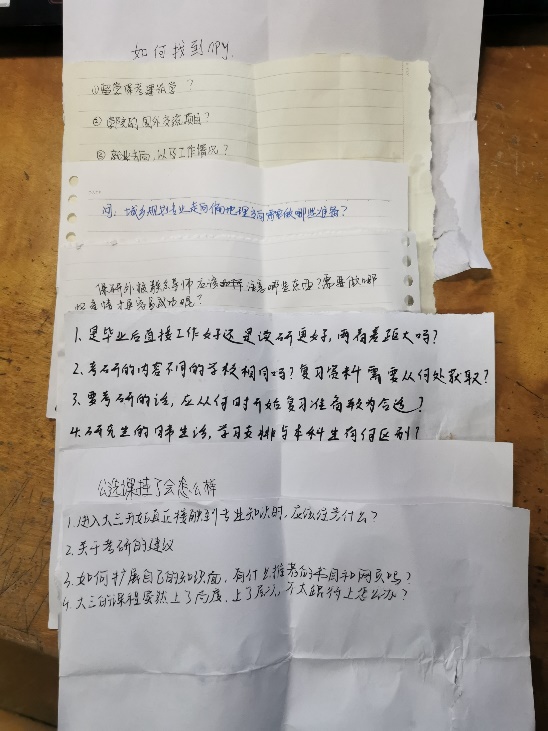 如何找到npy.
② 学校的国外交流项目？
③ 就业方向，以及工作情况？
问：城乡规划专业走向偏地理方向需要做哪些准备？
保研外校联系导师应该怎样注意哪些东西？需要做哪
些事情才更容易成功呢？
1. 是毕业后直接工作好还是读研更好，两者差距大吗？
2. 考研的内容不同的学校相同吗？复习资料需要从何处获取？
3. 要考研的话，应从何时开始复习准备较为合适？
4. 研究生的日常生活，学习安排与本科生有何区别？
公选课挂了会怎么样
1. 进入大三开始真正接触到专业知识时，应该注意什么？
2. 关于考研的建议
3. 如何扩展自己的知识面，有什么推荐的书目和网页吗？
4. 大三的课程虽然上了高度，上了层次，不太跟得上怎么办？